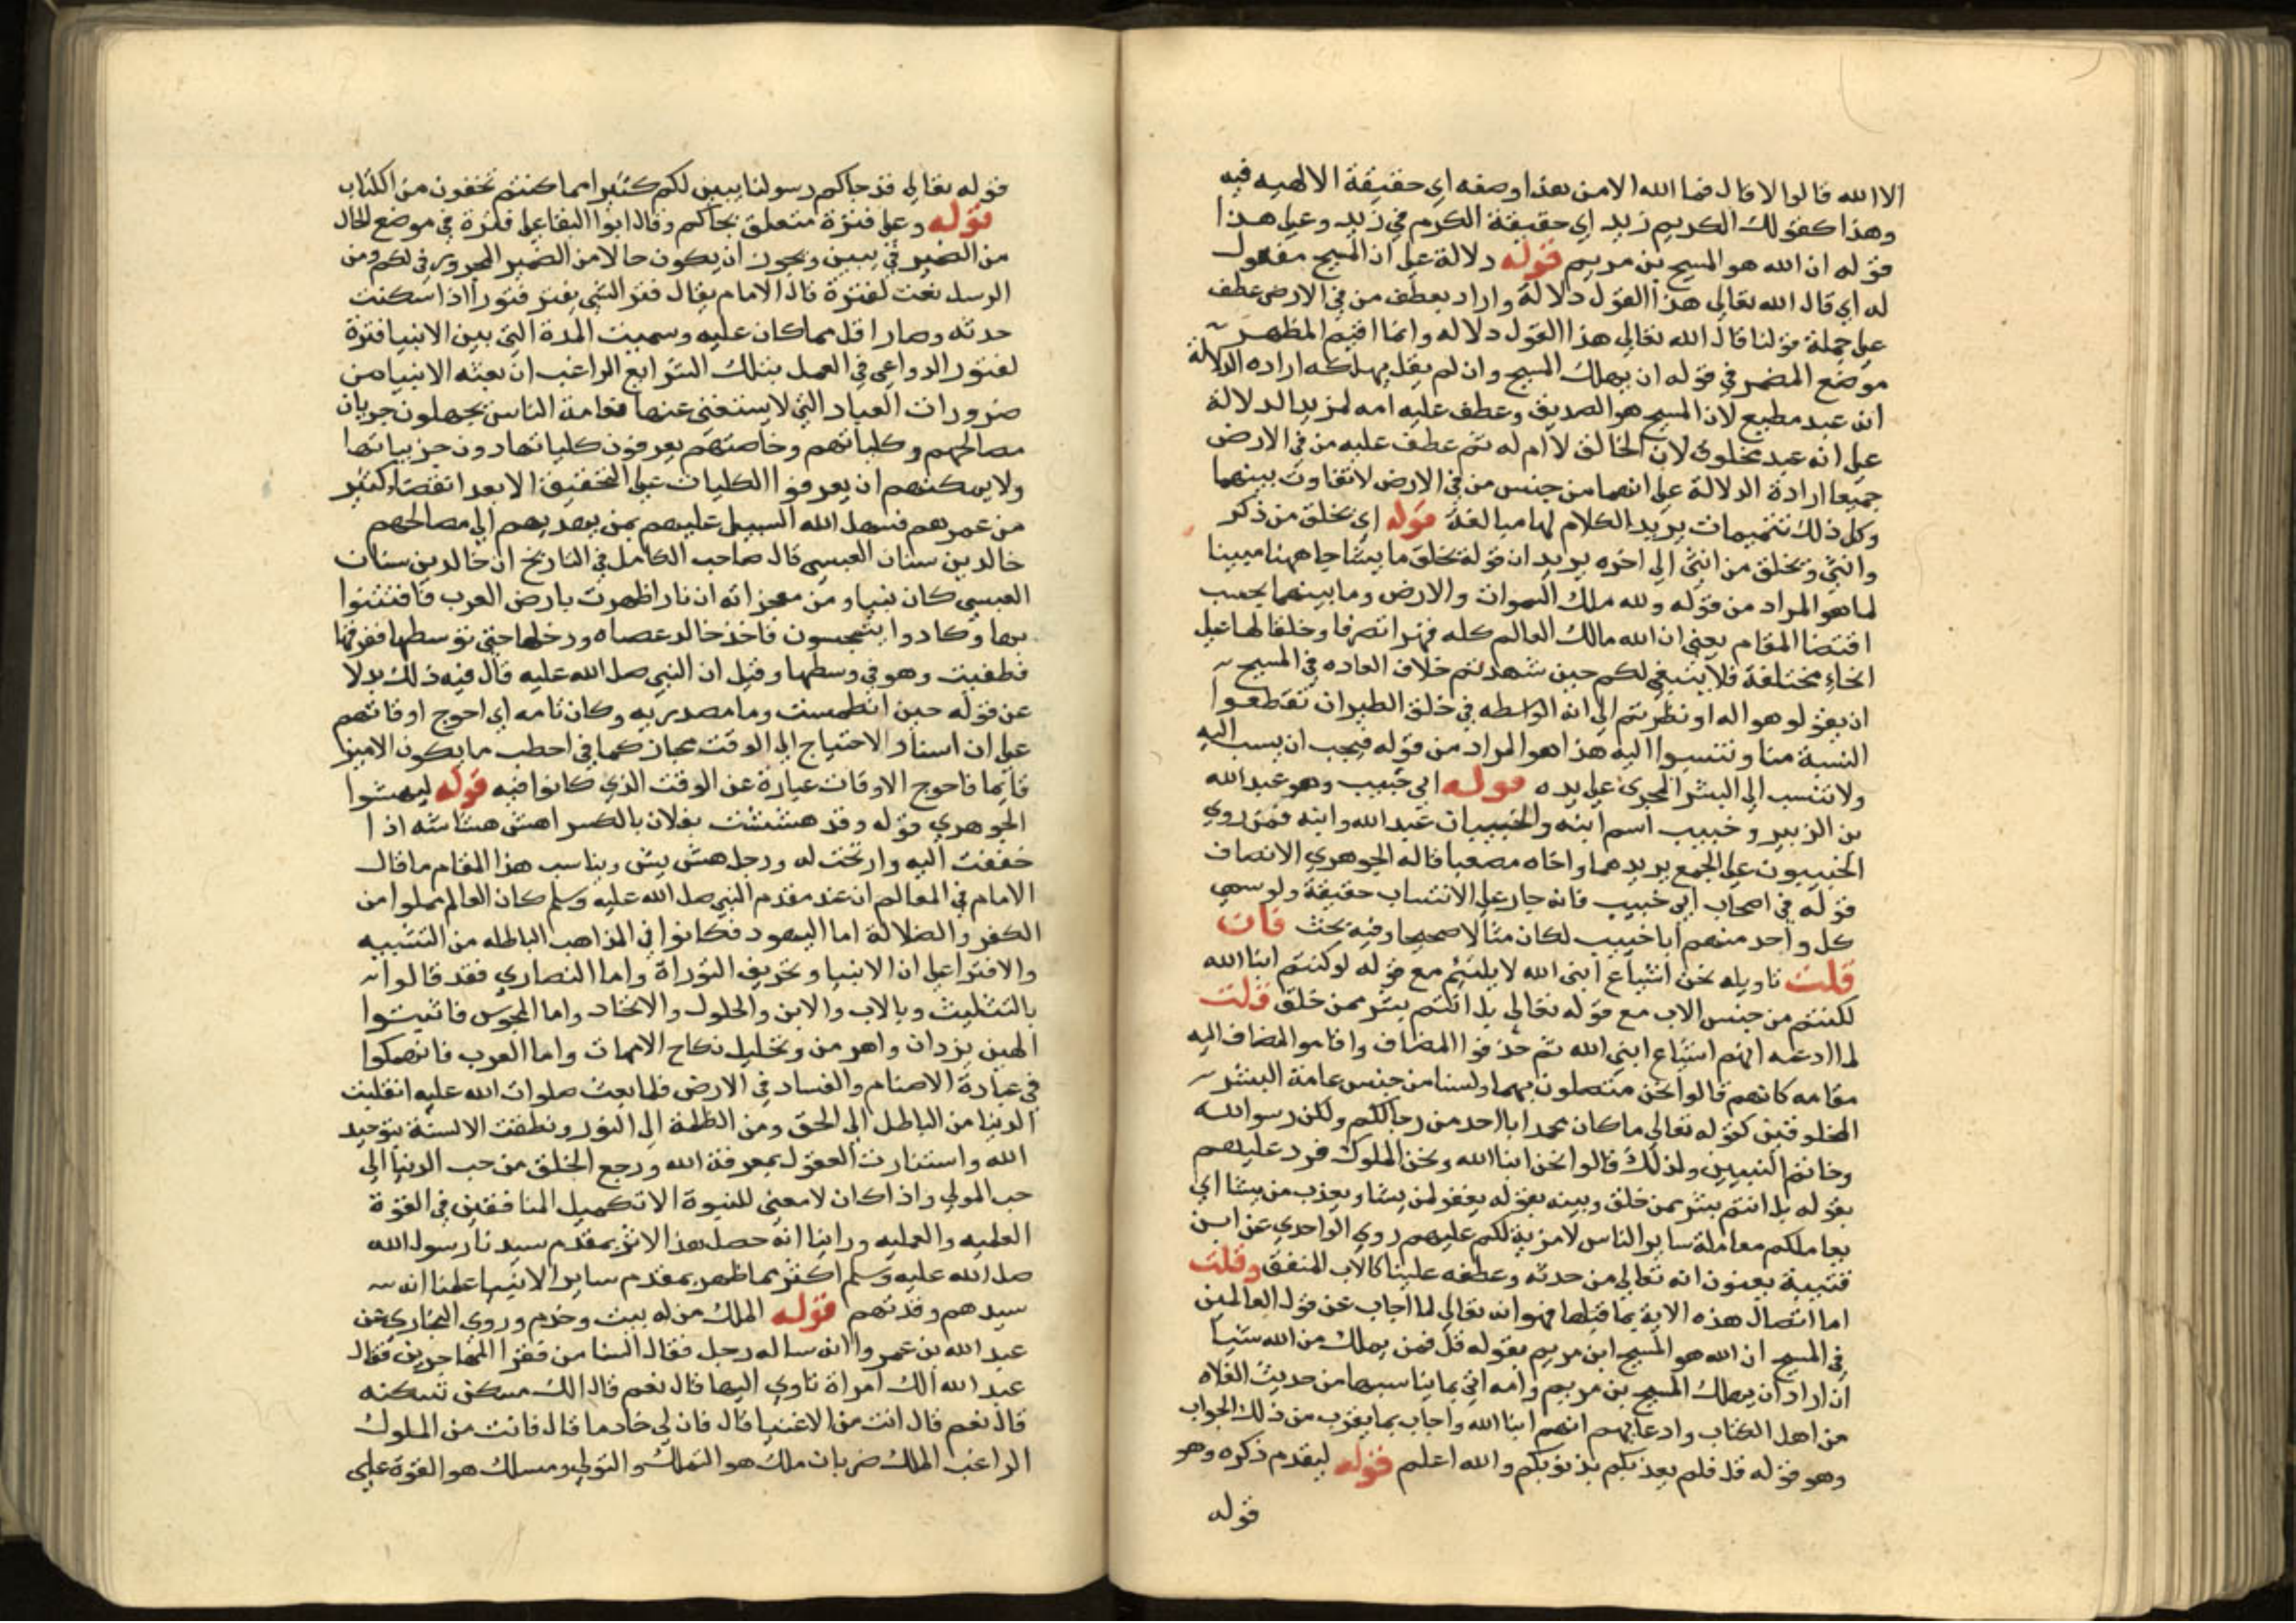 الا الله قالوا لا قال فما الله الا من هذا وصفه اي حقيقة الالهيه فيه
وهذا كقولك الكريم زيد اي حقيقة الكرم في زيد وعلى هذا
قوله ان الله هو المسيح بن مريم قوله دلالة على ان المسيح مفعول
له اي قال الله تعالى هذا القول دلالة واراد بعطف من في الارض عطف
على جملة قولنا قال الله تعالى هذا القول دلاله وانما اقيم المظهر
موضع المضمر في قوله ان يهلك المسيح وان لم يقل يهلكه اراده الدلالة
انه عبد مطيع لان المسيح هو الصديق وعطف عليه امه لمزيد الدلالة
على انه عبد مخلوق لان الخالق لا ام له ثم عطف عليه من في الارض
جميعا ارادة الدلالة على انهما من جنس من في الارض لا تفاوت بينهما
وكل ذلك تتميمات يزيد الكلام لها مبالغة قوله اي يخلق من ذكر
وانثى ويخلق من انثى الى اخره يريد ان قوله يخلق ما يشا جا ههنا مبينا
لما هو المراد من قوله ولله ملك السموات والارض وما بينهما بحسب
اقتضا المقام يعني ان الله مالك العالم كله قهرا تصرفا وخلقا لها على
انحاء مختلفة فلا ينبغي لكم حين شهدتم خلاف العاده في المسيح
ان يقولو هو اله او نظرتم الى انه الواسطه في خلق الطير ان تقطعوا
النسبة منا وتنسبوا اليه هذا هو المراد من قوله فيجب ان ينسب اليه
ولا تنسب الى البشر المجرى على يده قوله ابي خبيب وهو عبد الله
بن الزبير وخبيب اسم ابنه والخبيبان عبد الله وابنه فمن روى
الخبيبون على الجمع يريدهما واخاه مصعبا قاله الجوهري الانصاف
قوله في اصحاب ابي خبيب فانه جار على الانتساب حقيقة ولو سمي
كل واحد منهم ابا خبيب لكان مثالا صحيحا وفيه بحث فان
قلت تاويله نحن اشياع ابني الله لا يلتئم مع قوله لو كنتم ابنا الله
لكنتم من جنس الاب مع قوله تعالى بل انتم بشر ممن خلق قلت
لما ادعمه انهم اشياع ابني الله ثم حذفوا المضاف واقاموا المضاف اليه
مقامه كانهم قالوا نحن متصلون بهما ولسنا من جنس عامة البشر
المخلوقين كقوله تعالى ما كان محمد ابا احد من رجالكم ولكن رسول الله
وخاتم النبيين ولذلك قالوا نحن ابنا الله ونحن الملوك فرد عليهم
بقوله بل انتم بشر ممن خلق وبينه بقوله يغفر لمن يشا ويعذب من يشا اي
يعاملكم معاملة ساير الناس لا مزية لكم عليهم روى الواحدي عن ابن
قتيبة يعنون انه تعالى من حدته وعطفه علينا كالاب المشفق وقلت
اما اتصال هذه الاية بما قبلها فهو انه تعالى لما اجاب عن قول العالمين
في المسيح ان الله هو المسيح ابن مريم بقوله قل فمن يملك من الله شيا
ان اراد ان يهلك المسيح بن مريم وامه اتى بما يناسبها من حديث الغلاه
من اهل الكتاب وادعايهم انهم ابنا الله واجاب بما يقرب من ذلك الجواب
وهو قوله قل فلم يعذبكم بذنوبكم والله اعلم قوله لتقدم ذكره وهو
قوله
قوله تعالى قد جاكم رسولنا يبين لكم كثيرا مما كنتم تخفون من الكتاب
قوله وعلى فترة متعلق بجاكم وقال ابوا البقا على فترة في موضع الحال
من الضمير في يبين ويجوز ان يكون حالا من الضمير المجرور في لكم ومن
الرسل نعت لفترة قال الامام يقال فتر الشي يفتر فتورا اذا سكنت
حدته وصار اقل مما كان عليه وسميت المدة التي بين الانبيا فترة
لفتور الدواعي في العمل بتلك الشرايع الراغب ان بعثه الانبيا من
ضرورات العباد التي لا يستغنى عنها فعامة الناس يجهلون جريان
مصالحهم وكلياتهم وخاصتهم يعرفون كلياتها دون جزيياتها
ولا يمكنهم ان يعرفوا الكليات على التحقيق الا بعد انقضاء كثير
من عمرهم فسهل الله السبيل عليهم بمن يهديهم الى مصالحهم
خالد بن سنان العبسي قال صاحب الكامل في التاريخ ان خالد بن سنان
العبسي كان نبيا ومن معجزاته ان نارا ظهرت بارض العرب فافتتنوا
بها وكادوا يتمجسون فاخذ خالد عصاه ودخلها حتى توسطها ففرقها
فطفيت وهو في وسطها وقيل ان النبي صلى الله عليه قال فيه ذلك بدلا
عن قوله حين انطمست وما مصدريه وكان تامه اي احوج اوقاتهم
على ان اسناد الاحتياج الى الوقت مجاز كما في اخطب ما يكون الامير
قايما فاحوج الاوقات عبارة عن الوقت الذي كانوا فيه قوله ليهشوا
الجوهري قوله وقد هششت بفلان بالكسر اهش هشاشه اذا
خففت اليه وارتحت له ورجل هش بش ويناسب هذا المقام ما قال
الامام في المعالم ان عند مقدم النبي صلى الله عليه وسلم كان العالم مملوا من
الكفر والضلالة اما اليهود فكانوا في المذاهب الباطله من التشبيه
والافترا على ان الانبيا وتحريف التوراة واما النصارى فقد قالوا
بالتثليث وبالاب والابن والحلول والاتحاد واما المجوس فاثبتوا
الهين يزدان واهرمن وتحليل نكاح الامهات واما العرب فانهمكوا
في عبادة الاصنام والفساد في الارض فلما بعث صلوات الله عليه انقلبت
الدنيا من الباطل الى الحق ومن الظلمة الى النور ونطقت الالسنة بتوحيد
الله واستنارت العقول بمعرفة الله ورجع الخلق من حب الدنيا الى
حب المولى واذا كان لا معنى للنبوة الا تكميل المنافقين في القوة
العلميه والعمليه وراينا انه حصل هذا الاثر بمقدم سيدنا رسول الله
صلى الله عليه وسلم اكثر مما ظهر بمقدم ساير الانبيا علمنا انه
سيدهم وقدتهم قوله الملك من له بيت وخدم وروى البخاري عن
عبد الله بن عمرو انه ساله رجل فقال السنا من فقرا المهاجرين فقال
عبد الله الك امراة تاوي اليها قال نعم قال الك مسكن تسكنه
قال نعم قال انت من الاغنيا قال فان لي خادما قال فانت من الملوك
الراغب الملك ضربان ملك هو التملك والتولي ومسلك هو القوة على